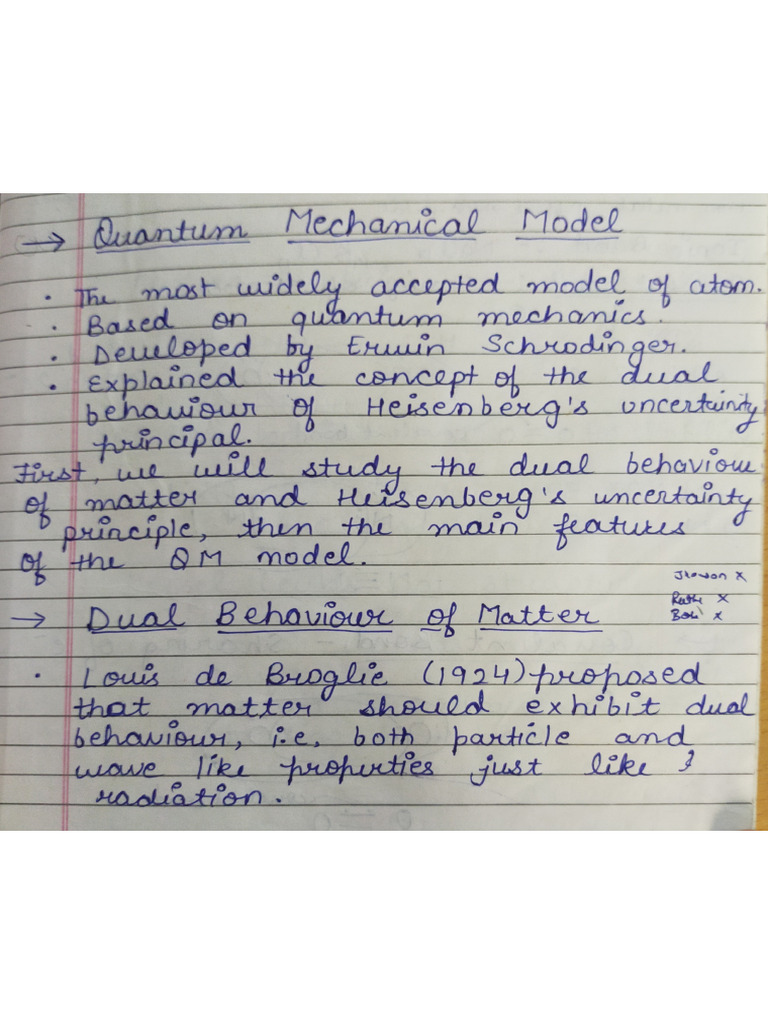 → Quantum Mechanical Model
• The most widely accepted model of atom.
• Based on quantum mechanics.
• Developed by Erwin Schrodinger.
• Explained the concept of the dual
behaviour of Heisenberg's uncertainty
principal.
First, we will study the dual behaviour
of matter and Heisenberg's uncertainty
principle, then the main features
of the QM model.
x
x
x
→ Dual Behaviour of Matter
• Louis de Broglie (1924) proposed
that matter should exhibit dual
behaviour, i.e, both particle and
wave like properties just like
radiation.